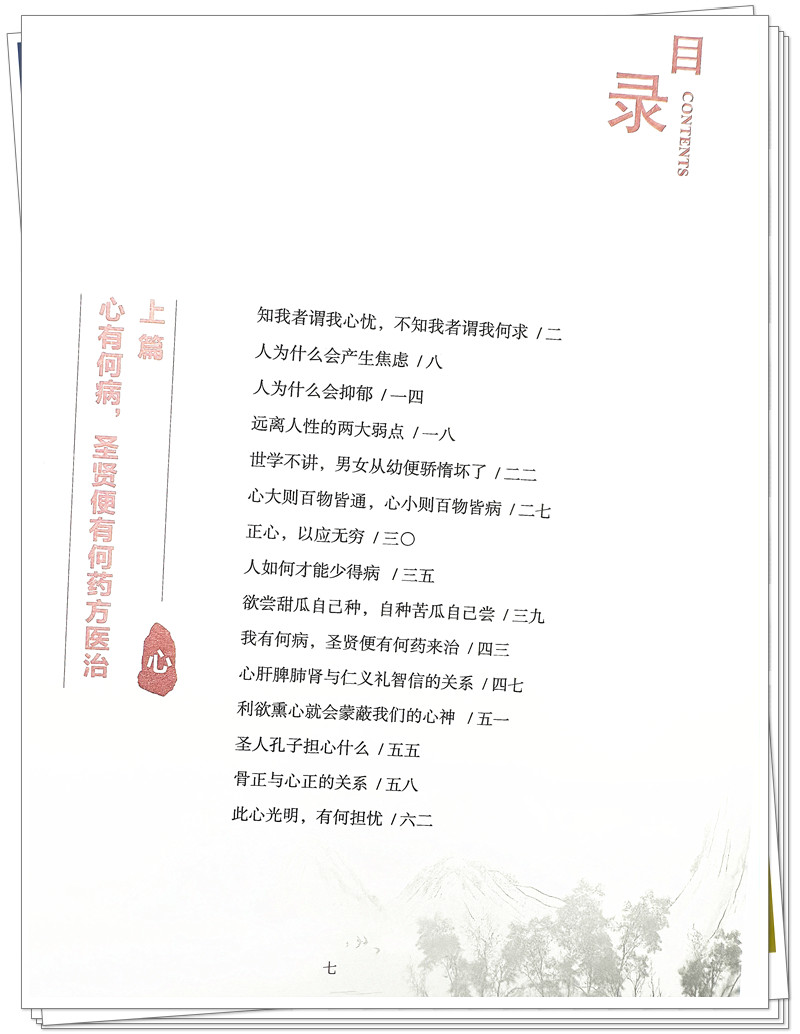 目
录
CONTENTS
上篇
心有何病，圣贤便有何药方医治
心
知我者谓我心忧，不知我者谓我何求 / 二
人为什么会产生焦虑 / 八
人为什么会抑郁 / 一四
远离人性的两大弱点 / 一八
世学不讲，男女从幼便骄惰坏了 / 二二
心大则百物皆通，心小则百物皆病 / 二七
正心，以应无穷 / 三〇
人如何才能少得病 / 三五
欲尝甜瓜自己种，自种苦瓜自己尝 / 三九
我有何病，圣贤便有何药来治 / 四三
心肝脾肺肾与仁义礼智信的关系 / 四七
利欲熏心就会蒙蔽我们的心神 / 五一
圣人孔子担心什么 / 五五
骨正与心正的关系 / 五八
此心光明，有何担忧 / 六二
七